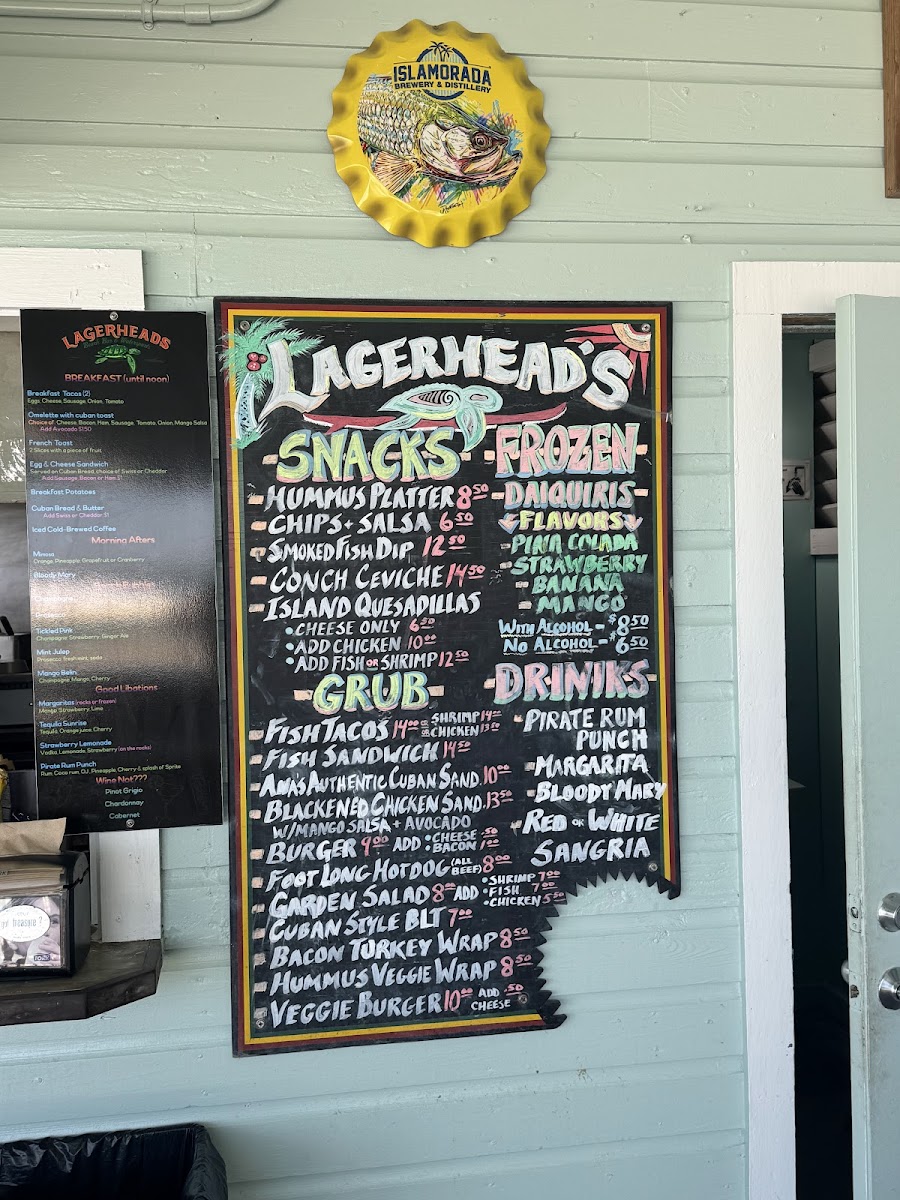 ISLAMORADA
BREWERY & DISTILLERY
LAGERHEADS
BREAKFAST (until noon)
Breakfast Tacos (2)
Eggs, Cheese, Sausage, Onion, Tomato
Omelette with cuban toast
Choice of Cheese, Bacon, Ham, Sausage, Tomato, Onion, Mango Salsa
Add Avocado $1.50
French Toast
2 Slices with a piece of fruit
Egg & Cheese Sandwich
Served on Cuban Bread, choice of Swiss or Cheddar
Add Sausage, Bacon or Ham $1
Breakfast Potatoes
Cuban Bread & Butter
Add Swiss or Cheddar $1
Iced Cold-Brewed Coffee
Morning Afters
Mimosa
Orange, Pineapple, Grapefruit or Cranberry
Bloody Mary
Prosecco
Tickled Pink
Champagne, Strawberry, Ginger Ale
Mint Julep
Prosecco, fresh mint, soda
Mango Belini
Champagne, Mango, Cherry
Good Libations
Margaritas (rocks or frozen)
Mango, Strawberry, Lime
Tequila Sunrise
Tequila, Orange juice, Cherry
Strawberry Lemonade
Vodka, Lemonade, Strawberry (on the rocks)
Pirate Rum Punch
Rum, Coco rum, OJ, Pineapple, Cherry & splash of Sprite
Wine Not???
Pinot Grigio
Chardonnay
Cabernet
got treasure?
LAGERHEAD'S
SNACKS
HUMMUS PLATTER 8.50
CHIPS + SALSA 6.50
SMOKED FISH DIP 12.50
CONCH CEVICHE 14.50
ISLAND QUESADILLAS
• CHEESE ONLY 6.50
• ADD CHICKEN 10.00
• ADD FISH OR SHRIMP 12.50
GRUB
FISH TACOS 14.00 SUB SHRIMP 14.00 CHICKEN 13.50
FISH SANDWICH 14.50
ANA'S AUTHENTIC CUBAN SAND. 10.00
BLACKENED CHICKEN SAND. 13.50
W/MANGO SALSA + AVOCADO
BURGER 9.00 ADD • CHEESE .50 • BACON 1.00
FOOT LONG HOT DOG (ALL BEEF) 8.00
GARDEN SALAD 8.00 ADD • SHRIMP 7.00 • FISH 7.00 • CHICKEN 5.50
CUBAN STYLE BLT 7.00
BACON TURKEY WRAP 8.50
HUMMUS VEGGIE WRAP 8.50
VEGGIE BURGER 10.00 ADD CHEESE .50
FROZEN
DAIQUIRIS
FLAVORS
PINA COLADA
STRAWBERRY
BANANA
MANGO
WITH ALCOHOL - $8.50
NO ALCOHOL - $6.50
DRINKS
PIRATE RUM
PUNCH
MARGARITA
BLOODY MARY
RED OR WHITE
SANGRIA